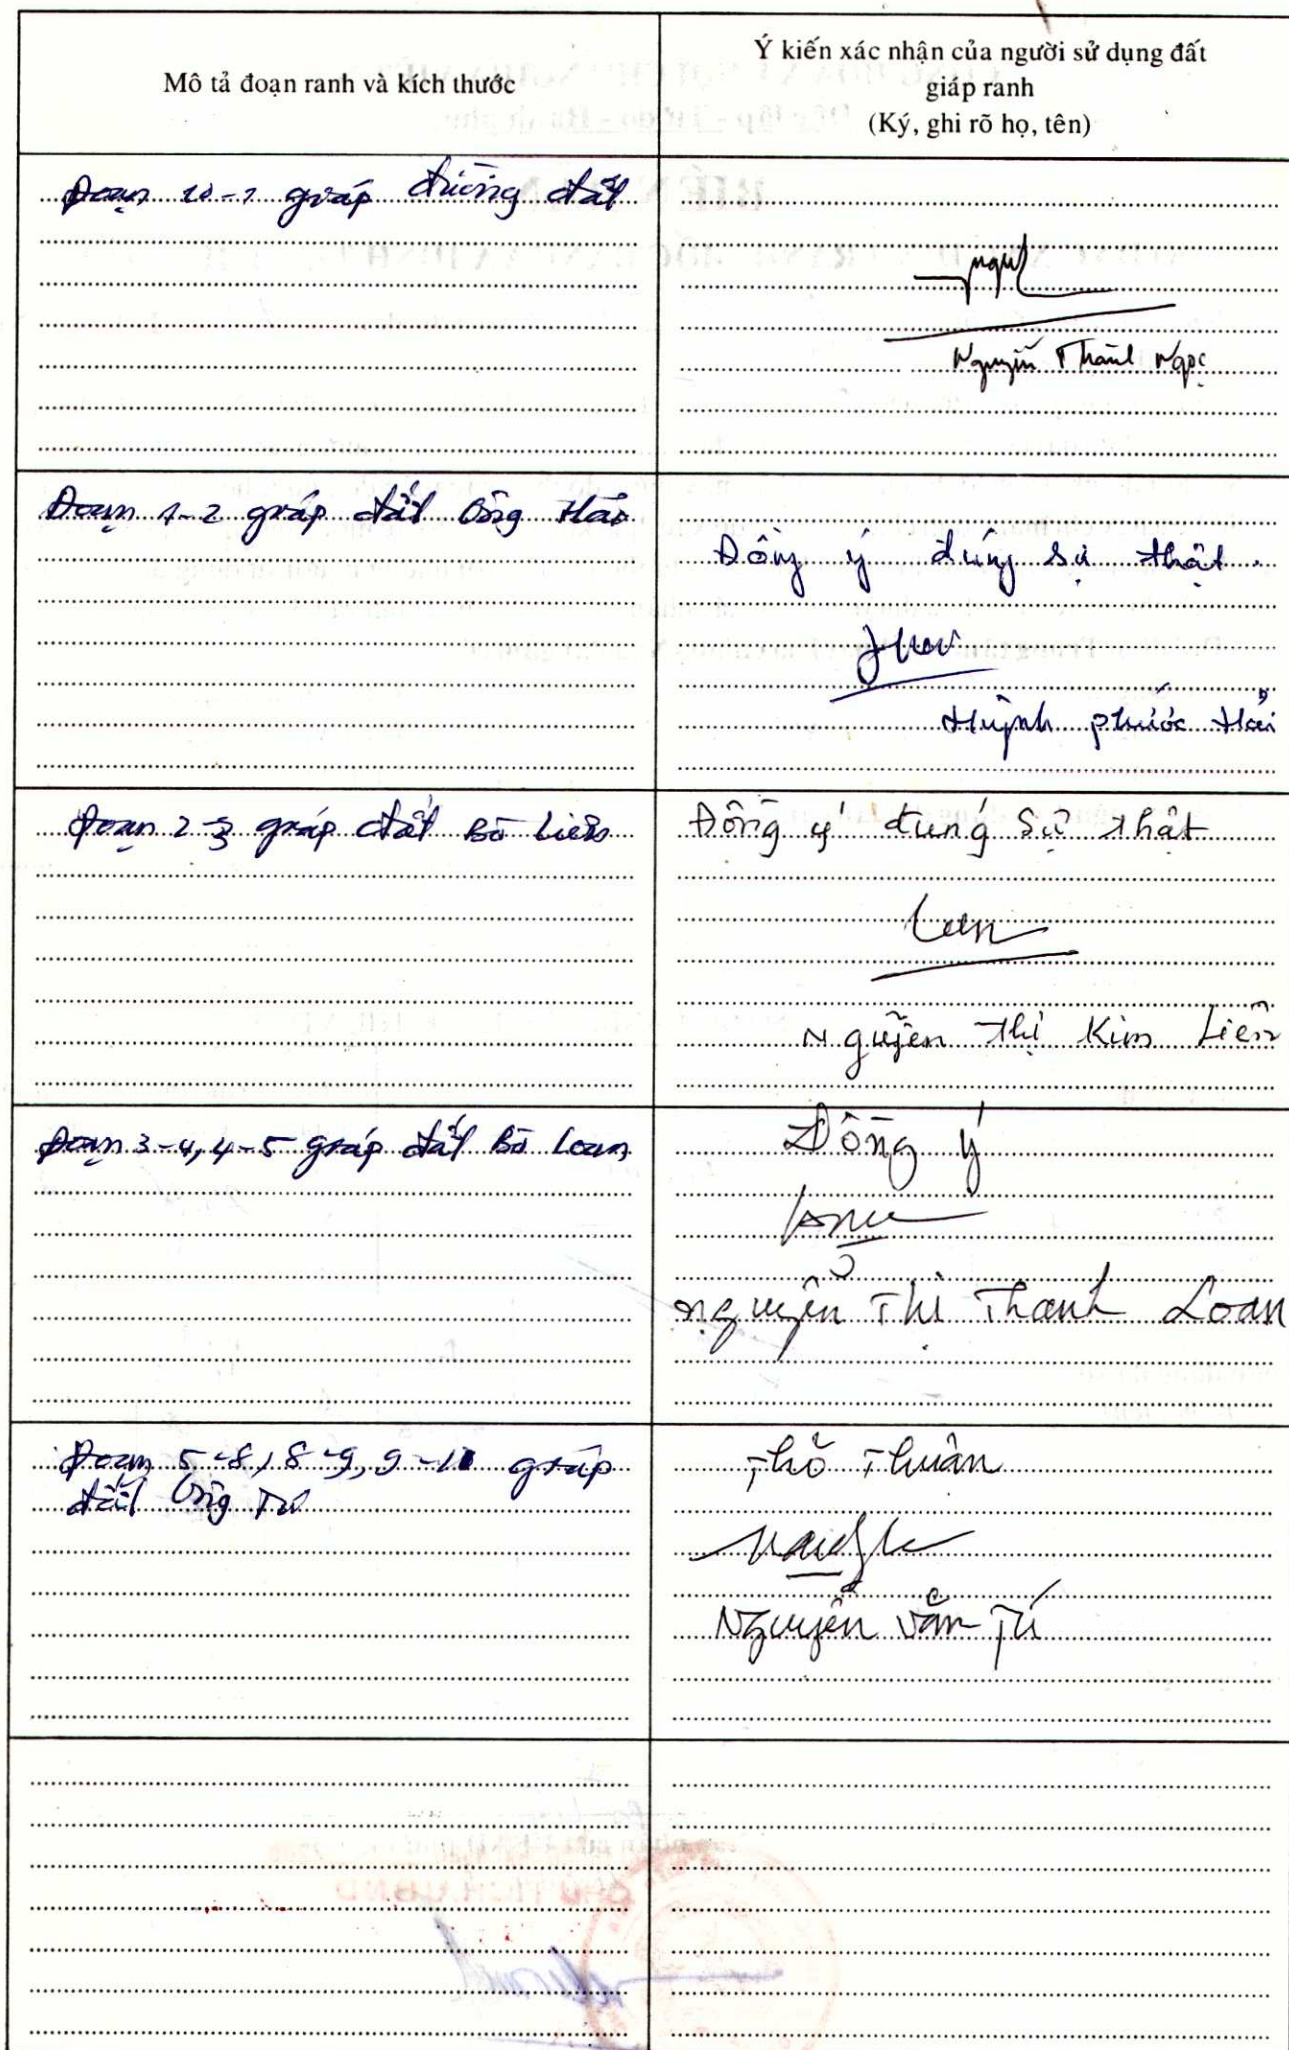 Mô tả đoạn ranh và kích thước
Ý kiến xác nhận của người sử dụng đất
giáp ranh
(Ký, ghi rõ họ, tên)
Đoạn 10-1 giáp đường đất
Nguyễn Thành Ngọc
Đoạn 1-2 giáp đất ông Hải
Đồng ý đúng sự thật.
Huỳnh phước Hải
Đoạn 2-3 giáp đất Bà Liên
Đồng ý đúng Sự thật
Nguyễn Thị Kim Liên
Đoạn 3-4, 4-5 giáp đất Bà Loan
Đồng ý
Nguyễn Thị Thanh Loan
Đoạn 5-8, 8-9, 9-10 giáp
đất ông Tú
Thõ Thuân
Nguyễn Văn Tú